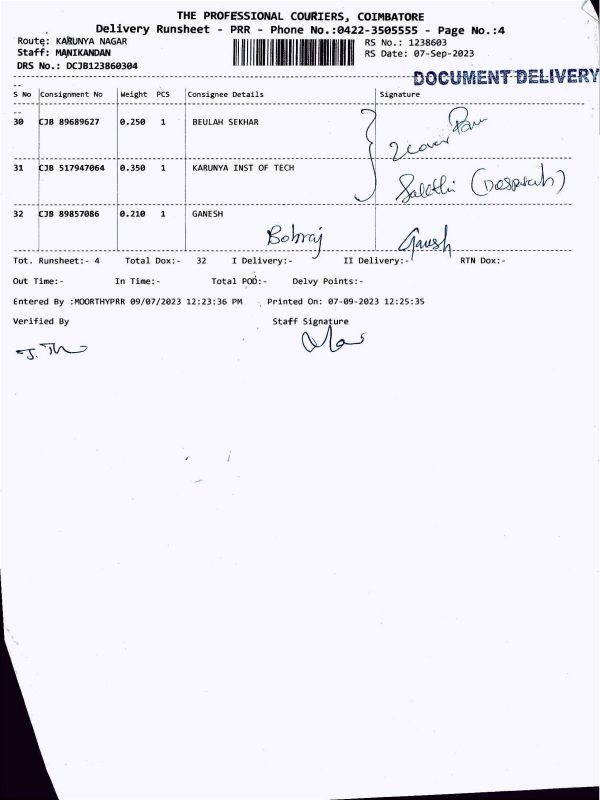 THE PROFESSIONAL COURIERS, COIMBATORE
Delivery Runsheet - PRR - Phone No.:0422-3505555 - Page No.:4
Route: KARUNYA NAGAR
RS No.: 1238603
Staff: MANIKANDAN
RS Date: 07-Sep-2023
DRS No.: DCJB123860304
DOCUMENT DELIVERY
S No Consignment No Weight PCS Consignee Details Signature
30 CJB 89689627 0.250 1 BEULAH SEKHAR
2 cover
31 CJB 517947064 0.350 1 KARUNYA INST OF TECH
Sakthi
32 CJB 89857086 0.210 1 GANESH
Ganesh
Tot. Runsheet:- 4 Total Dox:- 32 I Delivery:- II Delivery:- RTN Dox:-
Out Time:- In Time:- Total POD:- Delvy Points:-
Entered By :MOORTHYPRR 09/07/2023 12:23:36 PM Printed On: 07-09-2023 12:25:35
Verified By Staff Signature